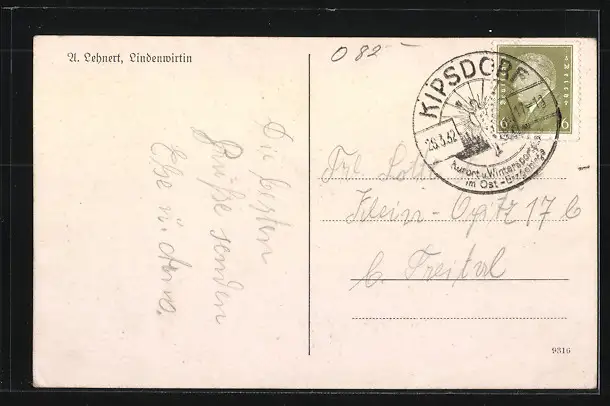 A. Lehnert, Lindenwirtin
O 82 -
KIPSDORF
26.3.32
Kurort u. Wintersportplatz
im Ost-Erzgebirge
6
6
Die besten
Grüße senden
Else u.
Frl. Lotte
Klein-Opitz 17 b
b. Freital
9316